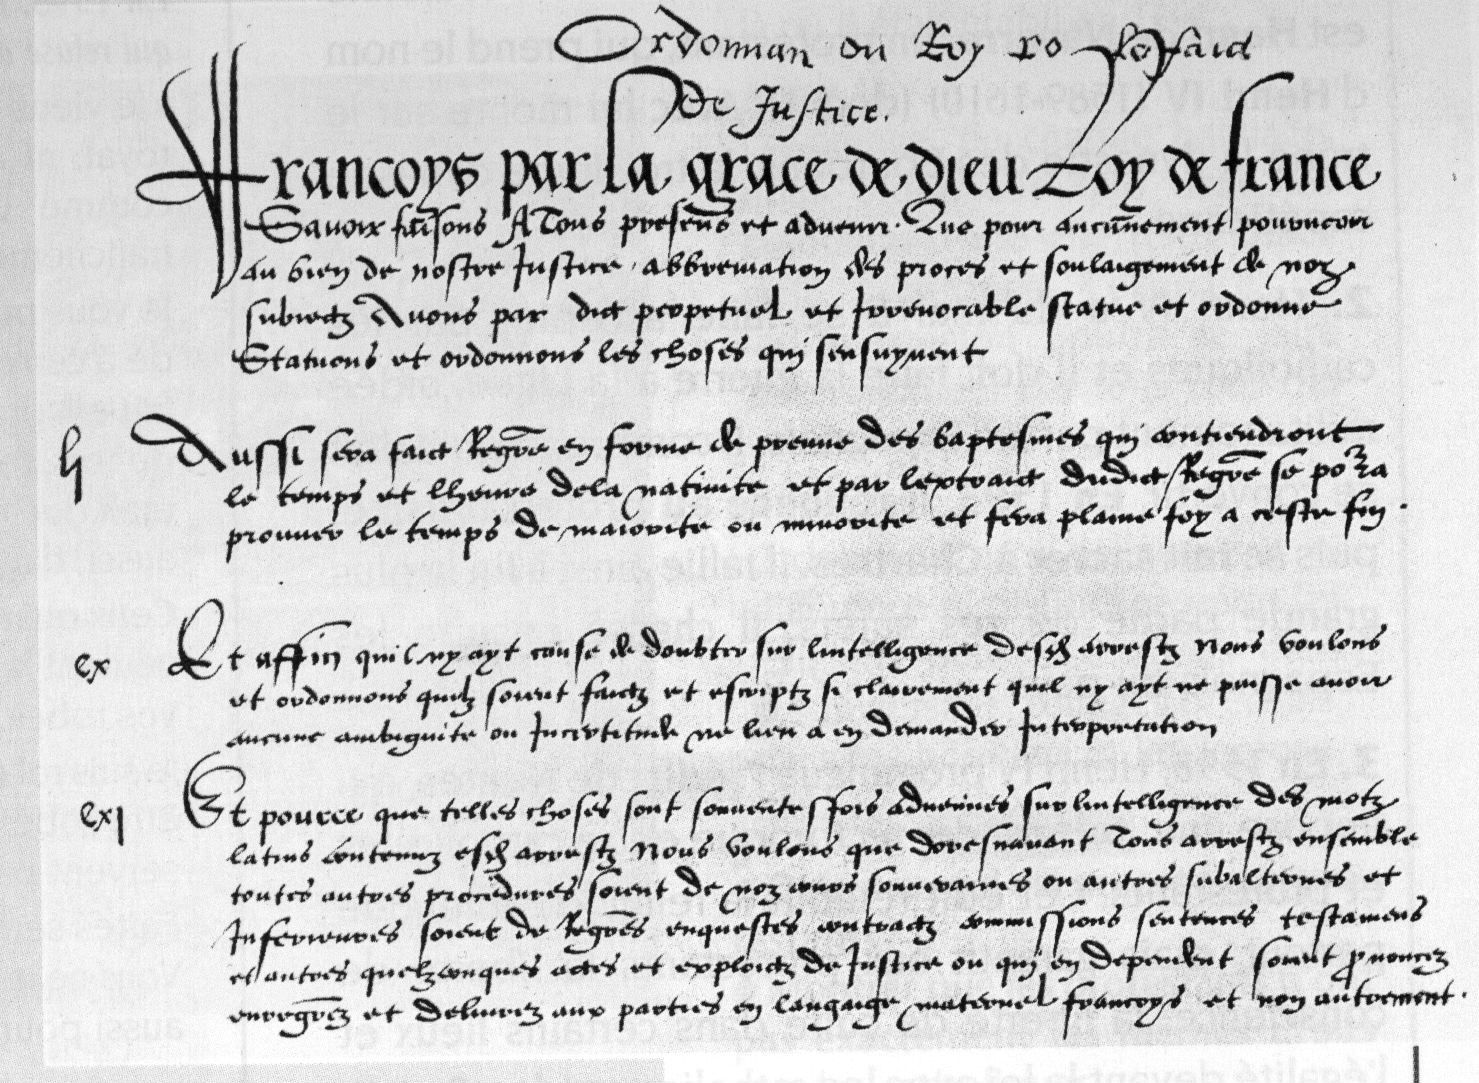 Ordonnan du Roy ro le faict
de Justice.
francoys par la grace de dieu Roy de france
Savoir faisons A Tous presens et advenir. Que pour aucunement pourveoir
au bien de nostre Justice, abbreviation des proces et soulaigement de noz
subiectz Avons par edict perpetuel et Irrevocable statue et ordonne
Statuons et ordonnons les choses qui sensuyvent
li
Aussi sera faict Regre en forme de preuve des baptesmes qui contiendront
le temps et lheure dela nativite et par lextraict dudict Regre se pora
prouver le temps de maiorite ou minorite et fera plaine foy a ceste fin.
cx
Et affin quil ny ayt cause de doubter sur lintelligence desd arrestz Nous voulons
et ordonnons quilz soient faictz et escriptz si clairement quil ny ayt ne puisse avoir
aucune ambiguite ou Incertitude ne lieu a en demander Interpretation
cxi
Et pource que telles choses sont souventesffois advenues sur lintelligence des motz
latins contenuz esd arrestz Nous voulons que doresnavant Tous arrestz ensemble
toutes autres procedures soient de noz cours souveraines ou autres subalternes et
Inferieures soient de Regres enquestes contractz commissions sentences testamens
et autres quelzconques actes et exploictz de Justice ou qui en dependent soient pronuncez
enregrez et delivrez aux parties en langaige maternel francoys et non autrement.